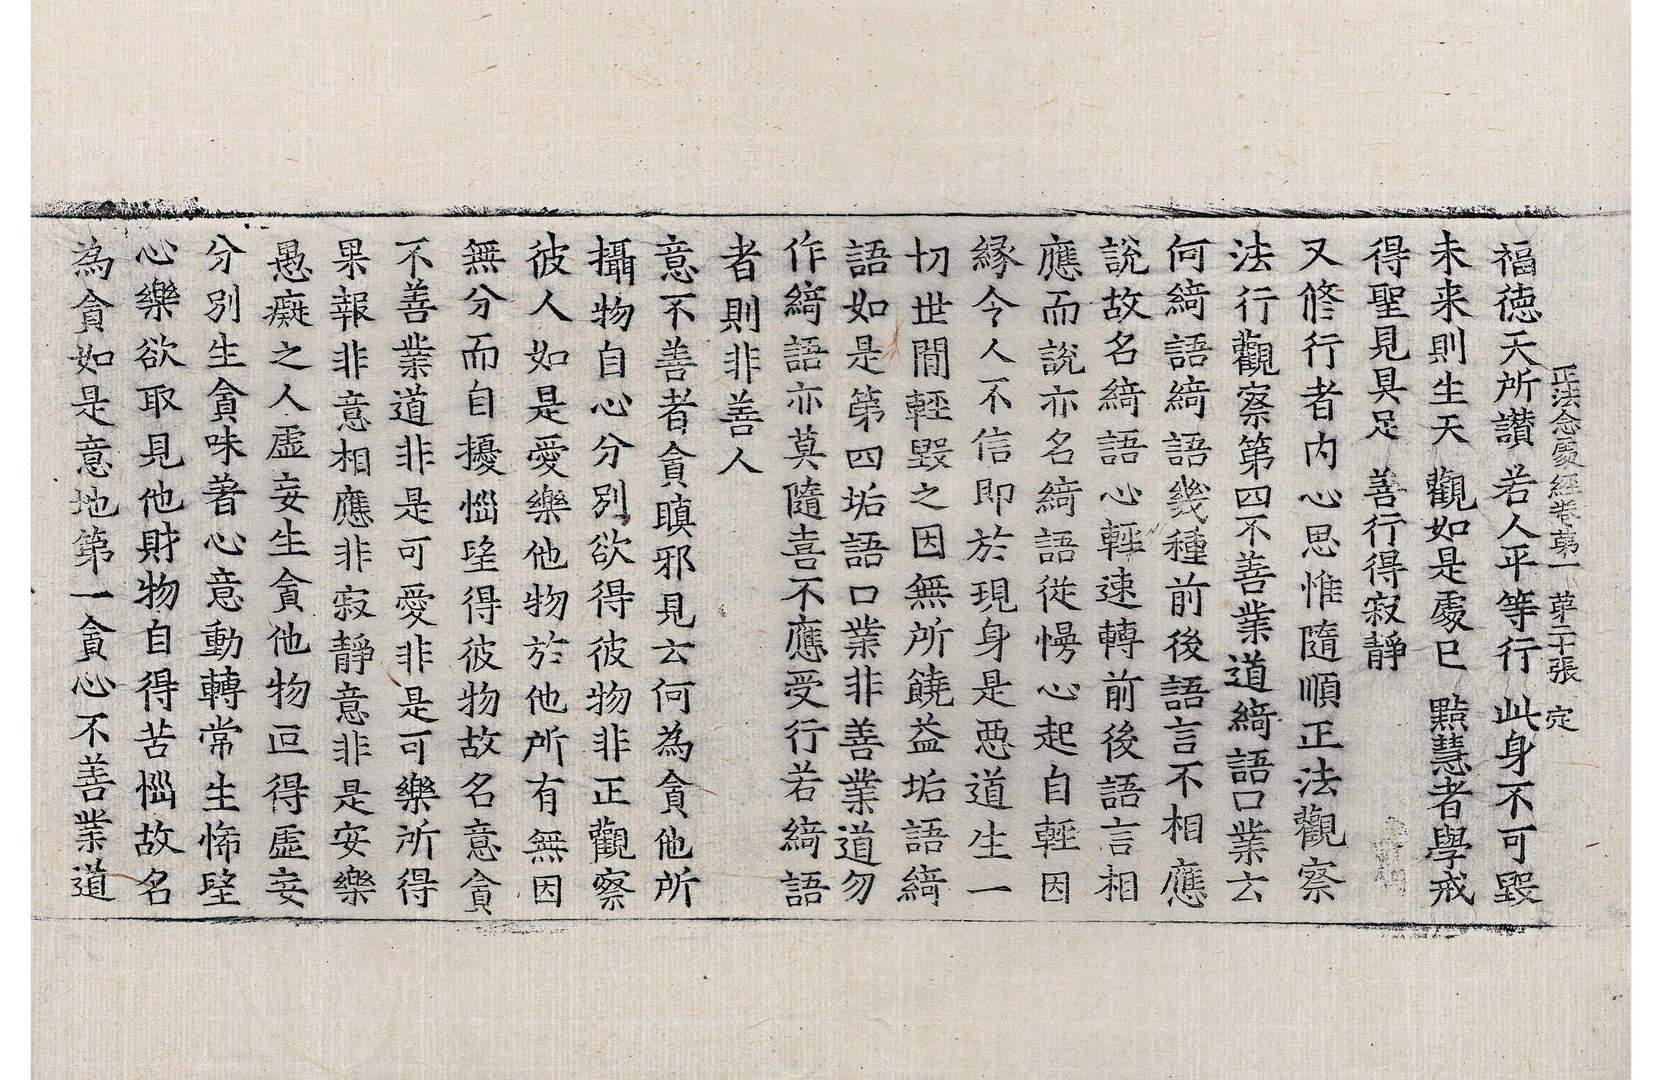 正法念處經卷第一　第二十張　定
福德天所讃　若人平等行　此身不可毀
未来則生天　觀如是處已　黠慧者學戒
得聖見具足　善行得寂靜
又修行者内心思惟隨順正法觀察
法行觀察第四不善業道綺語口業云
何綺語綺語幾種前後語言不相應
說故名綺語心輕速轉前後語言相
應而說亦名綺語從慢心起自輕因
縁令人不信即於現身是惡道生一
切世間輕毀之因無所饒益垢語綺
語如是第四垢語口業非善業道勿
作綺語亦莫隨喜不應受行若綺語
者則非善人
意不善者貪瞋邪見云何為貪他所
攝物自心分別欲得彼物非正觀察
彼人如是愛樂他物於他所有無因
無分而自擾惱望得彼物故名意貪
不善業道非是可愛非是可樂所得
果報非意相應非寂靜意非是安樂
愚癡之人虛妄生貪他物叵得虛妄
分別生貪味著心意動轉常生悕望
心樂欲取見他財物自得苦惱故名
為貪如是意地第一貪心不善業道